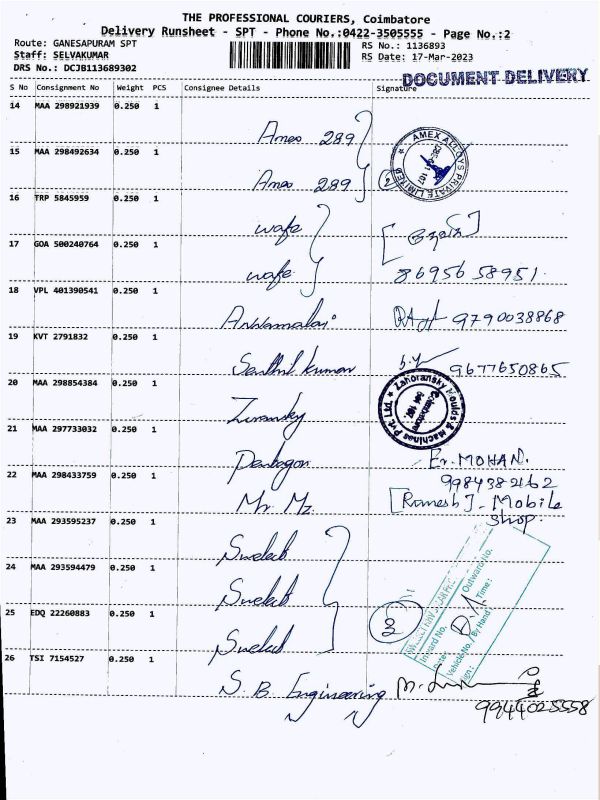 THE PROFESSIONAL COURIERS, Coimbatore
Delivery Runsheet - SPT - Phone No.:0422-3505555 - Page No.:2
Route: GANESAPURAM SPT RS No.: 1136893
Staff: SELVAKUMAR RS Date: 17-Mar-2023
DRS No.: DCJB113689302
DOCUMENT DELIVERY
S No Consignment No Weight PCS Consignee Details Signature
14 MAA 298921939 0.250 1
Amex 289
AMEX ALLOYS PRIVATE LIMITED
15 MAA 298492634 0.250 1
Amex 289 2
16 TRP 5845959 0.250 1
wafe
17 GOA 500240764 0.250 1
wafe 86956 58951
18 VPL 401390541 0.250 1
Annamalai 9790038868
19 KVT 2791832 0.250 1
Senthil kumar 9677650865
20 MAA 298854384 0.250 1
Zahoransky Moulds & Machines Pvt. Ltd.
Coimbatore
21 MAA 297733032 0.250 1
Pentagon Er. MOHAN.
22 MAA 298433759 0.250 1
9984382162
Mr. Mz [Ramesh]- Mobile
shop.
23 MAA 293595237 0.250 1
24 MAA 293594479 0.250 1
25 EDQ 22260883 0.250 1
3
Inward No. Outward No.
Date: Time:
Vehicle No. / By Hand:
Sign:
26 TSI 7154527 0.250 1
S. B. Engineering
9944025558